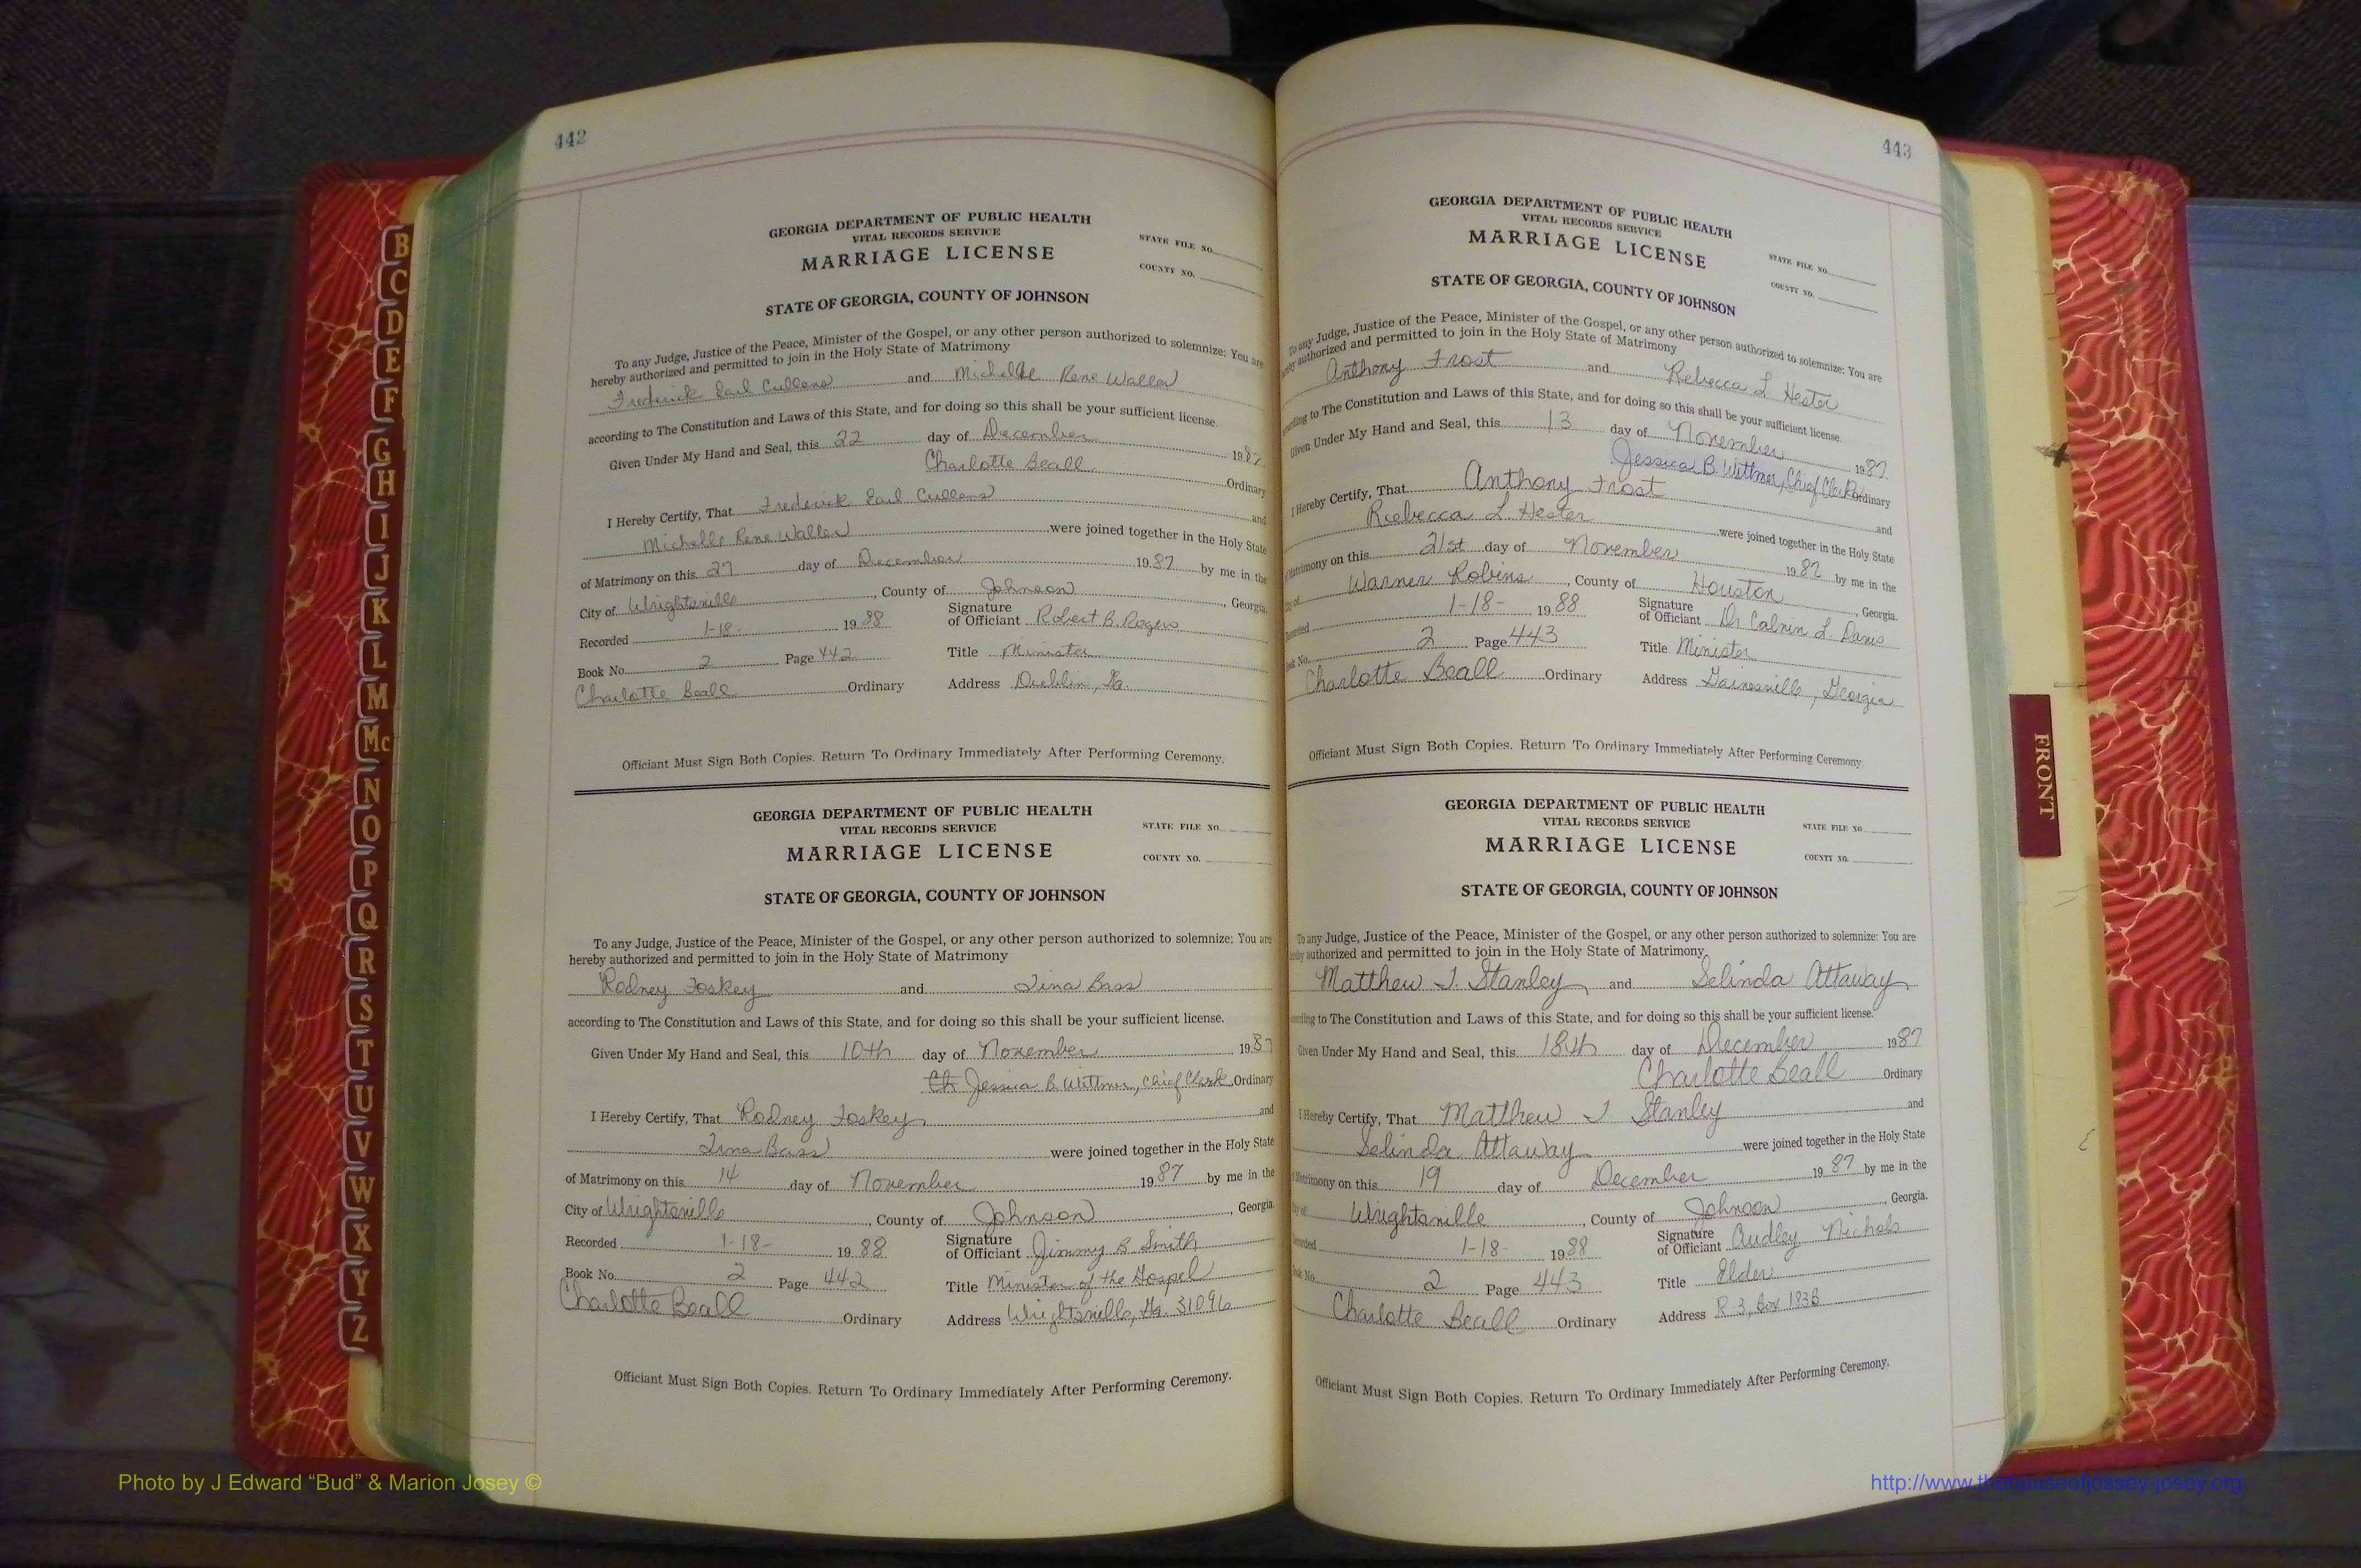 442
GEORGIA DEPARTMENT OF PUBLIC HEALTH
VITAL RECORDS SERVICE
MARRIAGE LICENSE
STATE FILE NO.
COUNTY NO.
STATE OF GEORGIA, COUNTY OF JOHNSON
To any Judge, Justice of the Peace, Minister of the Gospel, or any other person authorized to solemnize: You are
hereby authorized and permitted to join in the Holy State of Matrimony
Frederick Earl Cullens and Michelle Rene Waller
according to The Constitution and Laws of this State, and for doing so this shall be your sufficient license.
Given Under My Hand and Seal, this 22 day of December 1987
Charlotte Beall Ordinary
I Hereby Certify, That Frederick Earl Cullens and
Michelle Rene Waller were joined together in the Holy State
of Matrimony on this 27 day of December 1987 by me in the
City of Wrightsville, County of Johnson, Georgia.
Recorded 1-18- 1988 Signature of Officiant Robert B. Rogers
Book No. 2 Page 442 Title Minister
Charlotte Beall Ordinary Address Dublin, Ga.
Officiant Must Sign Both Copies. Return To Ordinary Immediately After Performing Ceremony.
GEORGIA DEPARTMENT OF PUBLIC HEALTH
VITAL RECORDS SERVICE
MARRIAGE LICENSE
STATE FILE NO.
COUNTY NO.
STATE OF GEORGIA, COUNTY OF JOHNSON
To any Judge, Justice of the Peace, Minister of the Gospel, or any other person authorized to solemnize: You are
hereby authorized and permitted to join in the Holy State of Matrimony
Rodney Foskey and Tina Bass
according to The Constitution and Laws of this State, and for doing so this shall be your sufficient license.
Given Under My Hand and Seal, this 10th day of November 1987
Ch Jessica B. Wittmer, Chief Clerk Ordinary
I Hereby Certify, That Rodney Foskey and
Tina Bass were joined together in the Holy State
of Matrimony on this 14 day of November 1987 by me in the
City of Wrightsville, County of Johnson, Georgia
Recorded 1-18- 1988 Signature of Officiant Jimmy B Smith
Book No. 2 Page 442 Title Minister of the Gospel
Charlotte Beall Ordinary Address Wrightsville, Ga. 31096
Officiant Must Sign Both Copies. Return To Ordinary Immediately After Performing Ceremony.
443
GEORGIA DEPARTMENT OF PUBLIC HEALTH
VITAL RECORDS SERVICE
MARRIAGE LICENSE
STATE FILE NO.
COUNTY NO.
STATE OF GEORGIA, COUNTY OF JOHNSON
To any Judge, Justice of the Peace, Minister of the Gospel, or any other person authorized to solemnize: You are
hereby authorized and permitted to join in the Holy State of Matrimony
Anthony Frost and Rebecca L Hester
according to The Constitution and Laws of this State, and for doing so this shall be your sufficient license.
Given Under My Hand and Seal, this 13 day of November 1987
Jessica B. Wittmer, Chief Clerk Ordinary
I Hereby Certify, That Anthony Frost and
Rebecca L. Hester were joined together in the Holy State
Matrimony on this 21st day of November 1987 by me in the
City of Warner Robins, County of Houston, Georgia.
Recorded 1-18- 1988 Signature of Officiant Dr Calvin L. Davis
Book No. 2 Page 443 Title Minister
Charlotte Beall Ordinary Address Gainesville, Georgia
Officiant Must Sign Both Copies. Return To Ordinary Immediately After Performing Ceremony.
GEORGIA DEPARTMENT OF PUBLIC HEALTH
VITAL RECORDS SERVICE
MARRIAGE LICENSE
STATE FILE NO.
COUNTY NO.
STATE OF GEORGIA, COUNTY OF JOHNSON
To any Judge, Justice of the Peace, Minister of the Gospel, or any other person authorized to solemnize: You are
hereby authorized and permitted to join in the Holy State of Matrimony
Matthew T. Stanley and Selinda Attaway
according to The Constitution and Laws of this State, and for doing so this shall be your sufficient license.
Given Under My Hand and Seal, this 18th day of December 1987
Charlotte Beall Ordinary
I Hereby Certify, That Matthew T. Stanley and
Selinda Attaway were joined together in the Holy State
Matrimony on this 19 day of December 1987 by me in the
City of Wrightsville, County of Johnson, Georgia.
Recorded 1-18- 1988 Signature of Officiant Audley Nichols
Book No. 2 Page 443 Title Elder
Charlotte Beall Ordinary Address R-3, Box 183B
Officiant Must Sign Both Copies. Return To Ordinary Immediately After Performing Ceremony.
B
C
D
E
F
G
H
I
J
K
L
M
Mc
N
O
P
Q
R
S
T
U
V
W
X
Y
Z
FRONT
Photo by J Edward “Bud” & Marion Josey ©
http://www.thehouseofjossey-josey.org